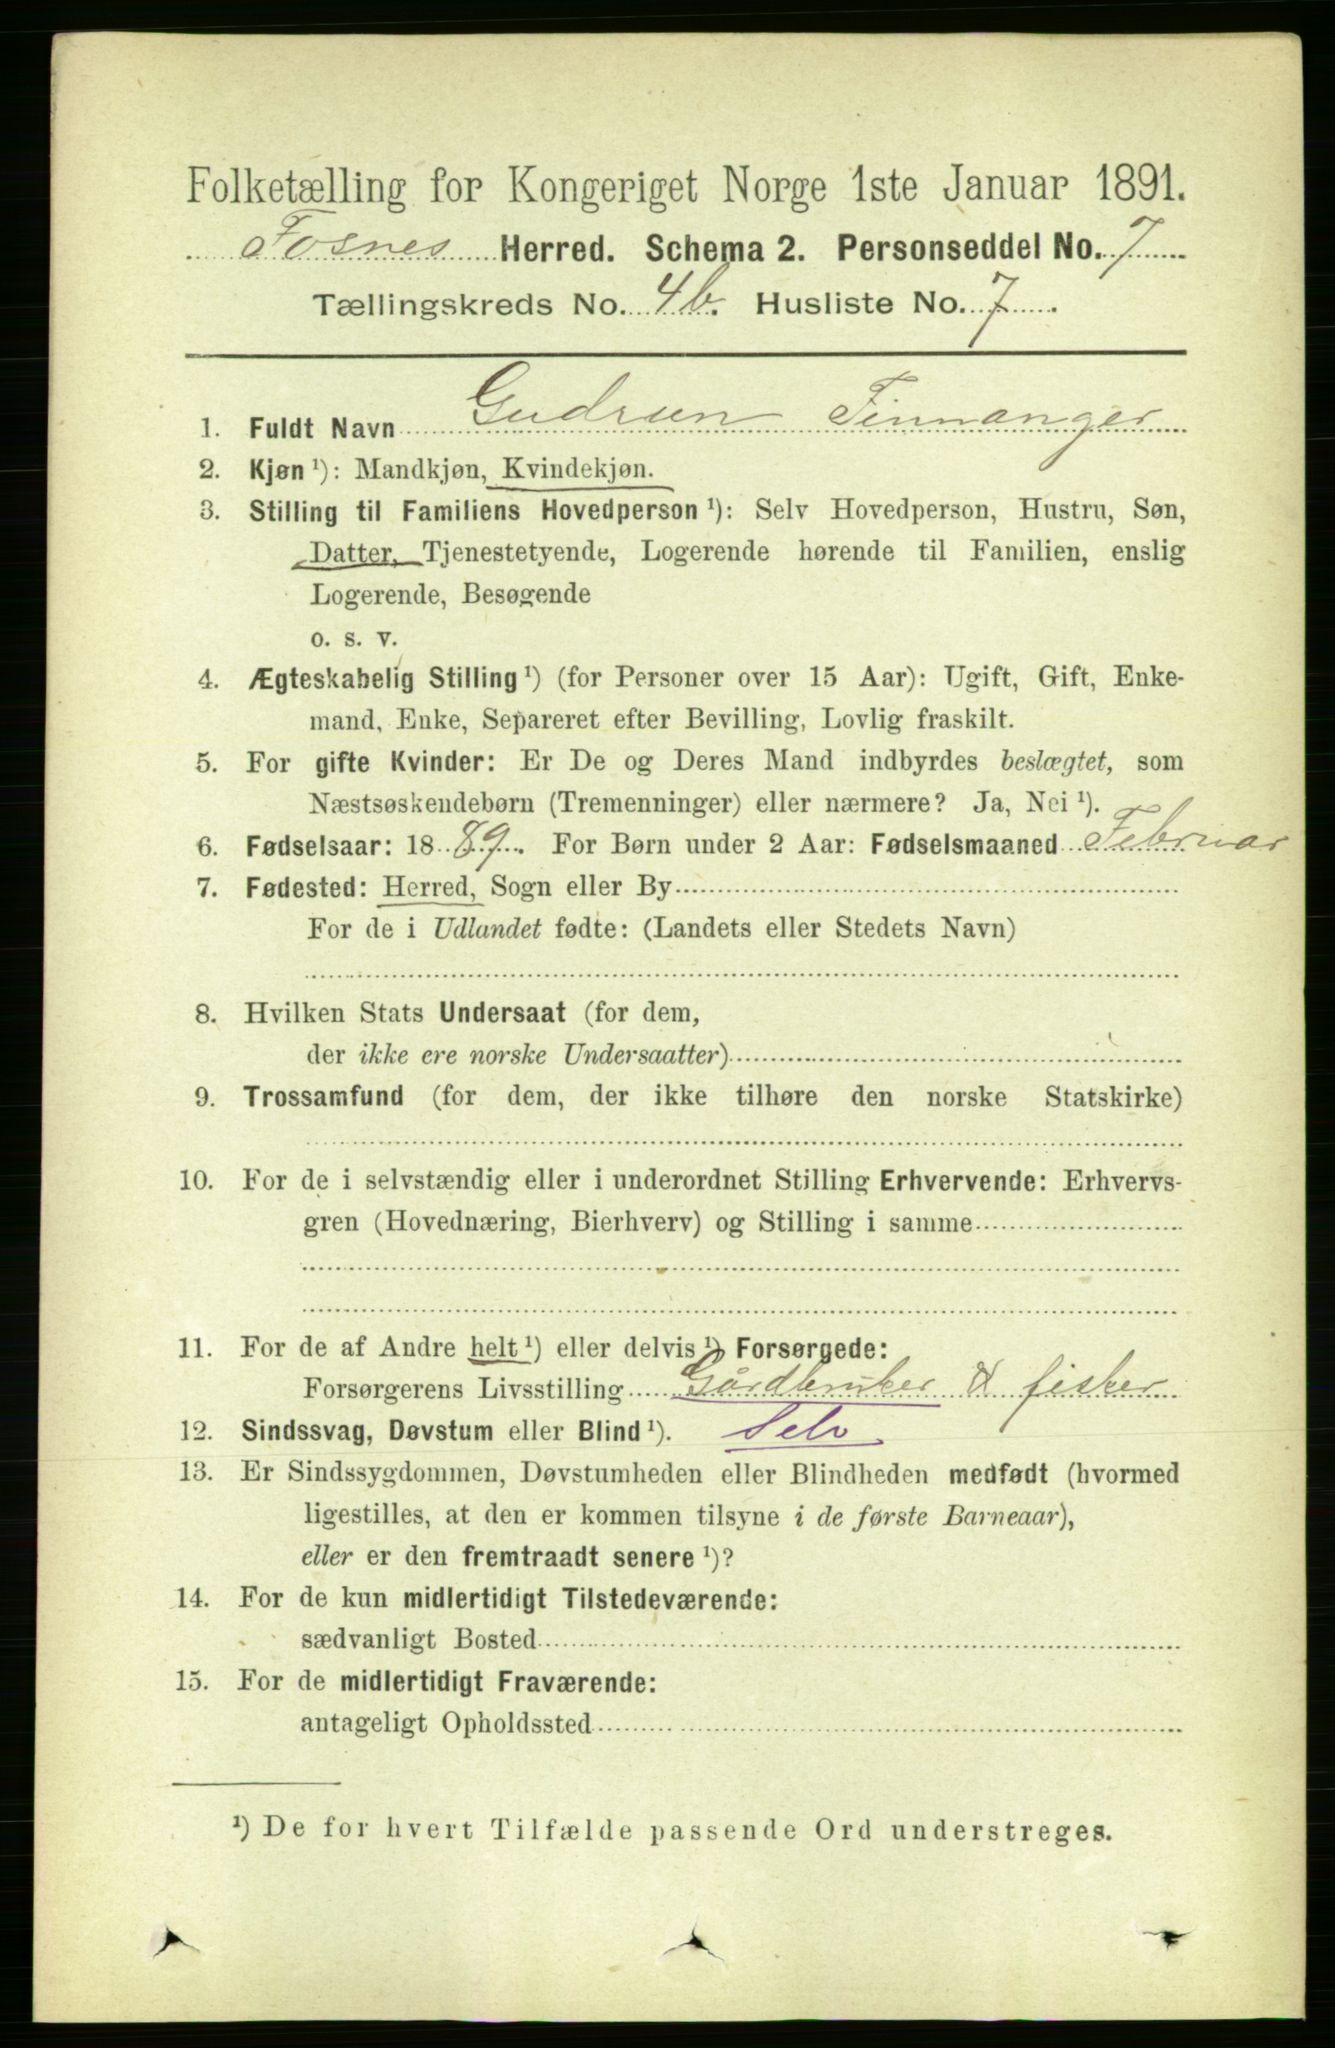 Folketælling for Kongeriget Norge 1ste Januar 1891.
Fosnes Herred. Schema 2. Personseddel No. 7
Tællingskreds No. 4b. Husliste No. 7
1. Fuldt Navn Gudrun Finnanger
2. Kjøn ¹): Mandkjøn, Kvindekjøn.
3. Stilling til Familiens Hovedperson ¹): Selv Hovedperson, Hustru, Søn,
Datter, Tjenestetyende, Logerende hørende til Familien, enslig
Logerende, Besøgende
o. s. v.
4. Ægteskabelig Stilling ¹) (for Personer over 15 Aar): Ugift, Gift, Enke-
mand, Enke, Separeret efter Bevilling, Lovlig fraskilt.
5. For gifte Kvinder: Er De og Deres Mand indbyrdes beslægtet, som
Næstsøskendebørn (Tremenninger) eller nærmere? Ja, Nei ¹).
6. Fødselsaar: 1889. For Børn under 2 Aar: Fødselsmaaned Februar
7. Fødested: Herred, Sogn eller By
For de i Udlandet fødte: (Landets eller Stedets Navn)
8. Hvilken Stats Undersaat (for dem,
der ikke ere norske Undersaatter)
9. Trossamfund (for dem, der ikke tilhøre den norske Statskirke)
10. For de i selvstændig eller i underordnet Stilling Erhvervende: Erhvervs-
gren (Hovednæring, Bierhverv) og Stilling i samme
11. For de af Andre helt ¹) eller delvis ¹) Forsørgede:
Forsørgerens Livsstilling Gårdbruker & fisker
12. Sindssvag, Døvstum eller Blind ¹). Selv
13. Er Sindssygdommen, Døvstumheden eller Blindheden medfødt (hvormed
ligestilles, at den er kommen tilsyne i de første Barneaar),
eller er den fremtraadt senere ¹)?
14. For de kun midlertidigt Tilstedeværende:
sædvanligt Bosted
15. For de midlertidigt Fraværende:
antageligt Opholdssted
¹) De for hvert Tilfælde passende Ord understreges.